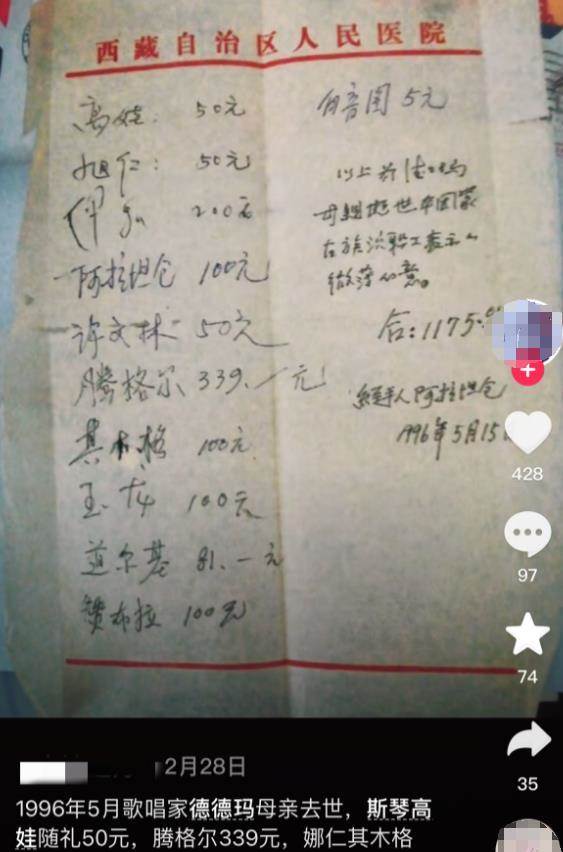 西藏自治区人民医院
高娃: 50元
旭仁: 50元
伊 200元
阿拉坦仓 100元
许文林 50元
腾格尔 339.一元
其木格 100元
玉龙 100元
道尔基 81.一元
赞布拉 100元
白音图 5元
以上为德德玛
母親逝世中国蒙
古族演職工表示的
微薄心意。
合:1175.00
经手人阿拉坦仓
1996年5月15
428
97
74
35
2月28日
1996年5月歌唱家德德玛母亲去世，斯琴高
娃随礼50元，腾格尔339元，娜仁其木格